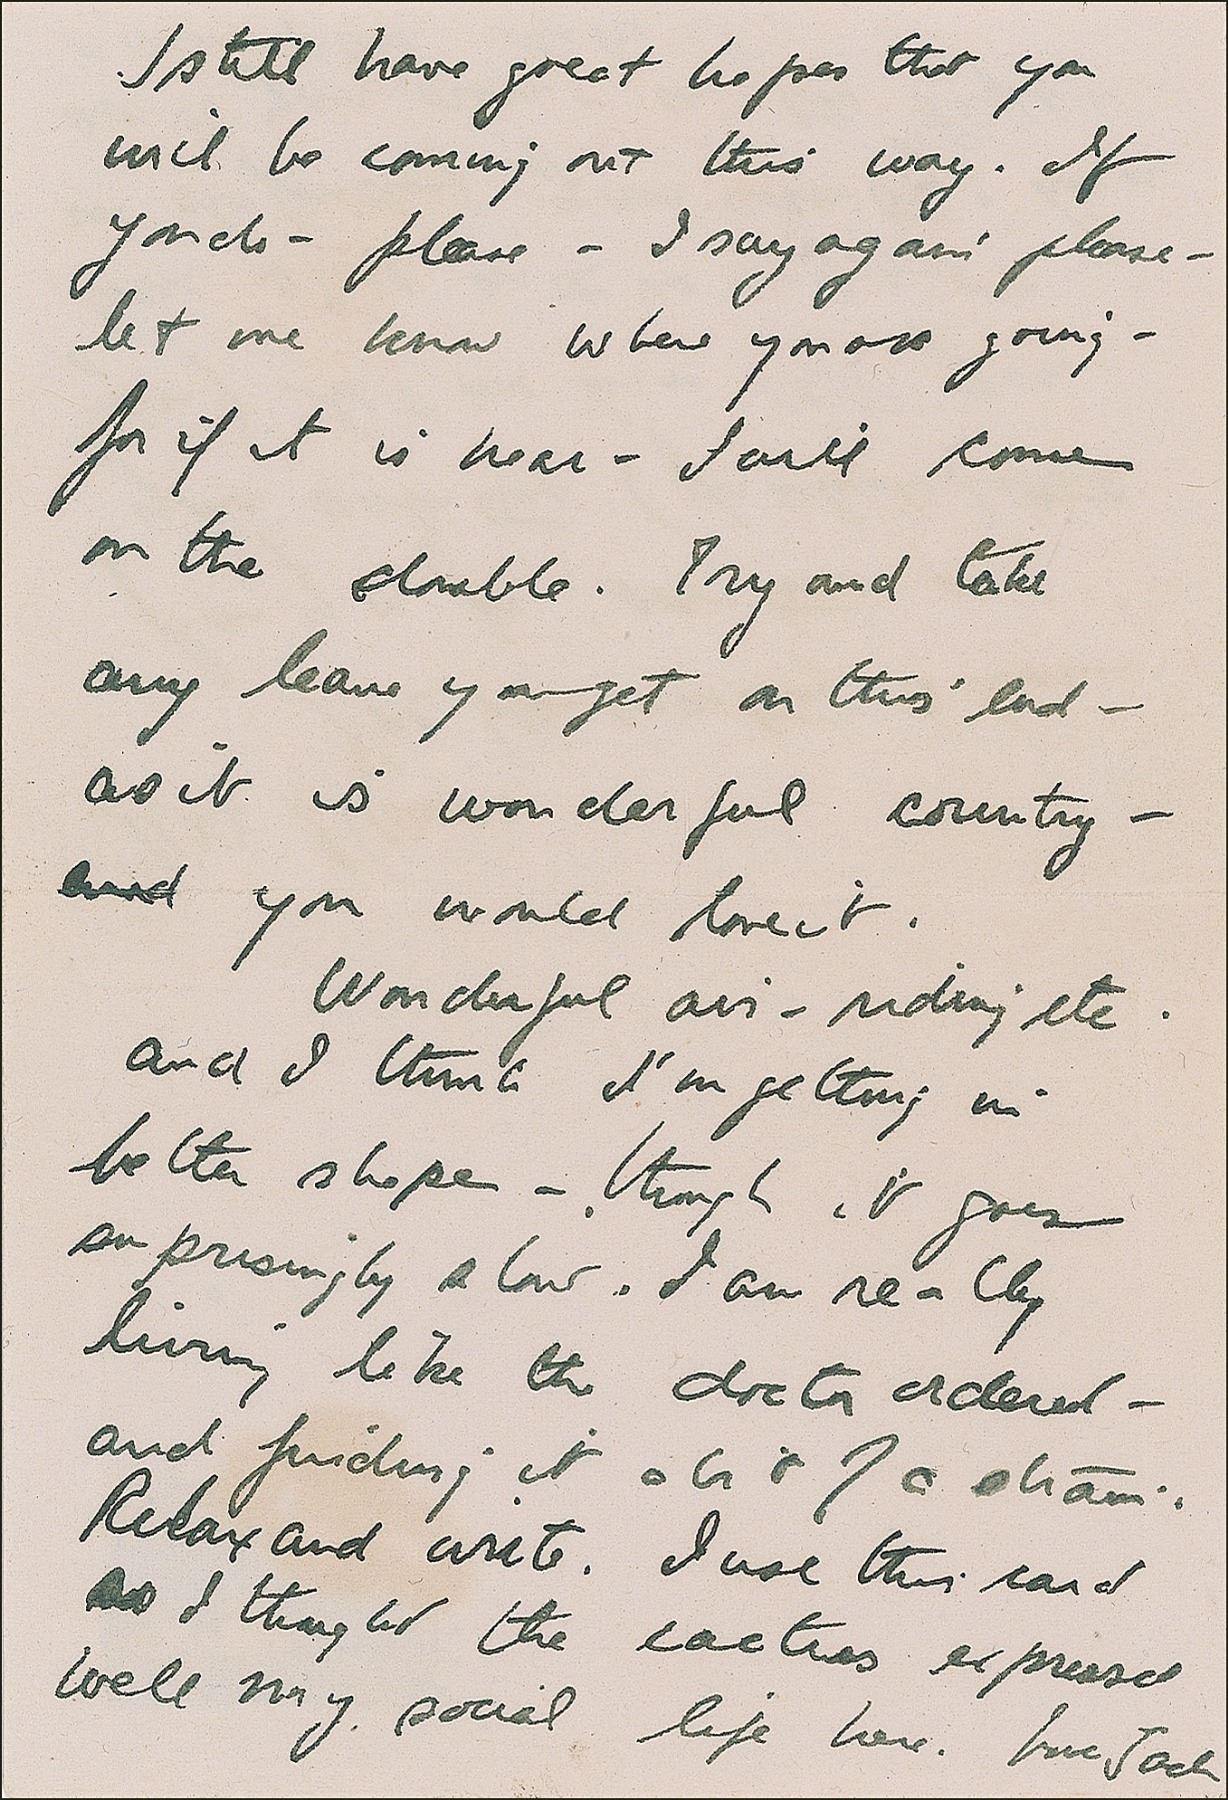 I still have great hopes that you
will be coming out this way. If
you do - please - I say again please -
let me know where you are going -
for if it is near - I will come
on the double. Try and take
any leave you get on this end -
as it is wonderful country -
and you would love it.
Wonderful air - riding etc.
and I think I'm getting in
better shape - though it goes
surprisingly slow. I am really
living like the doctor ordered -
and finding it a bit of a strain.
Relax and write. I use this card
as I thought the cactus expressed
well my social life here. Love Jack